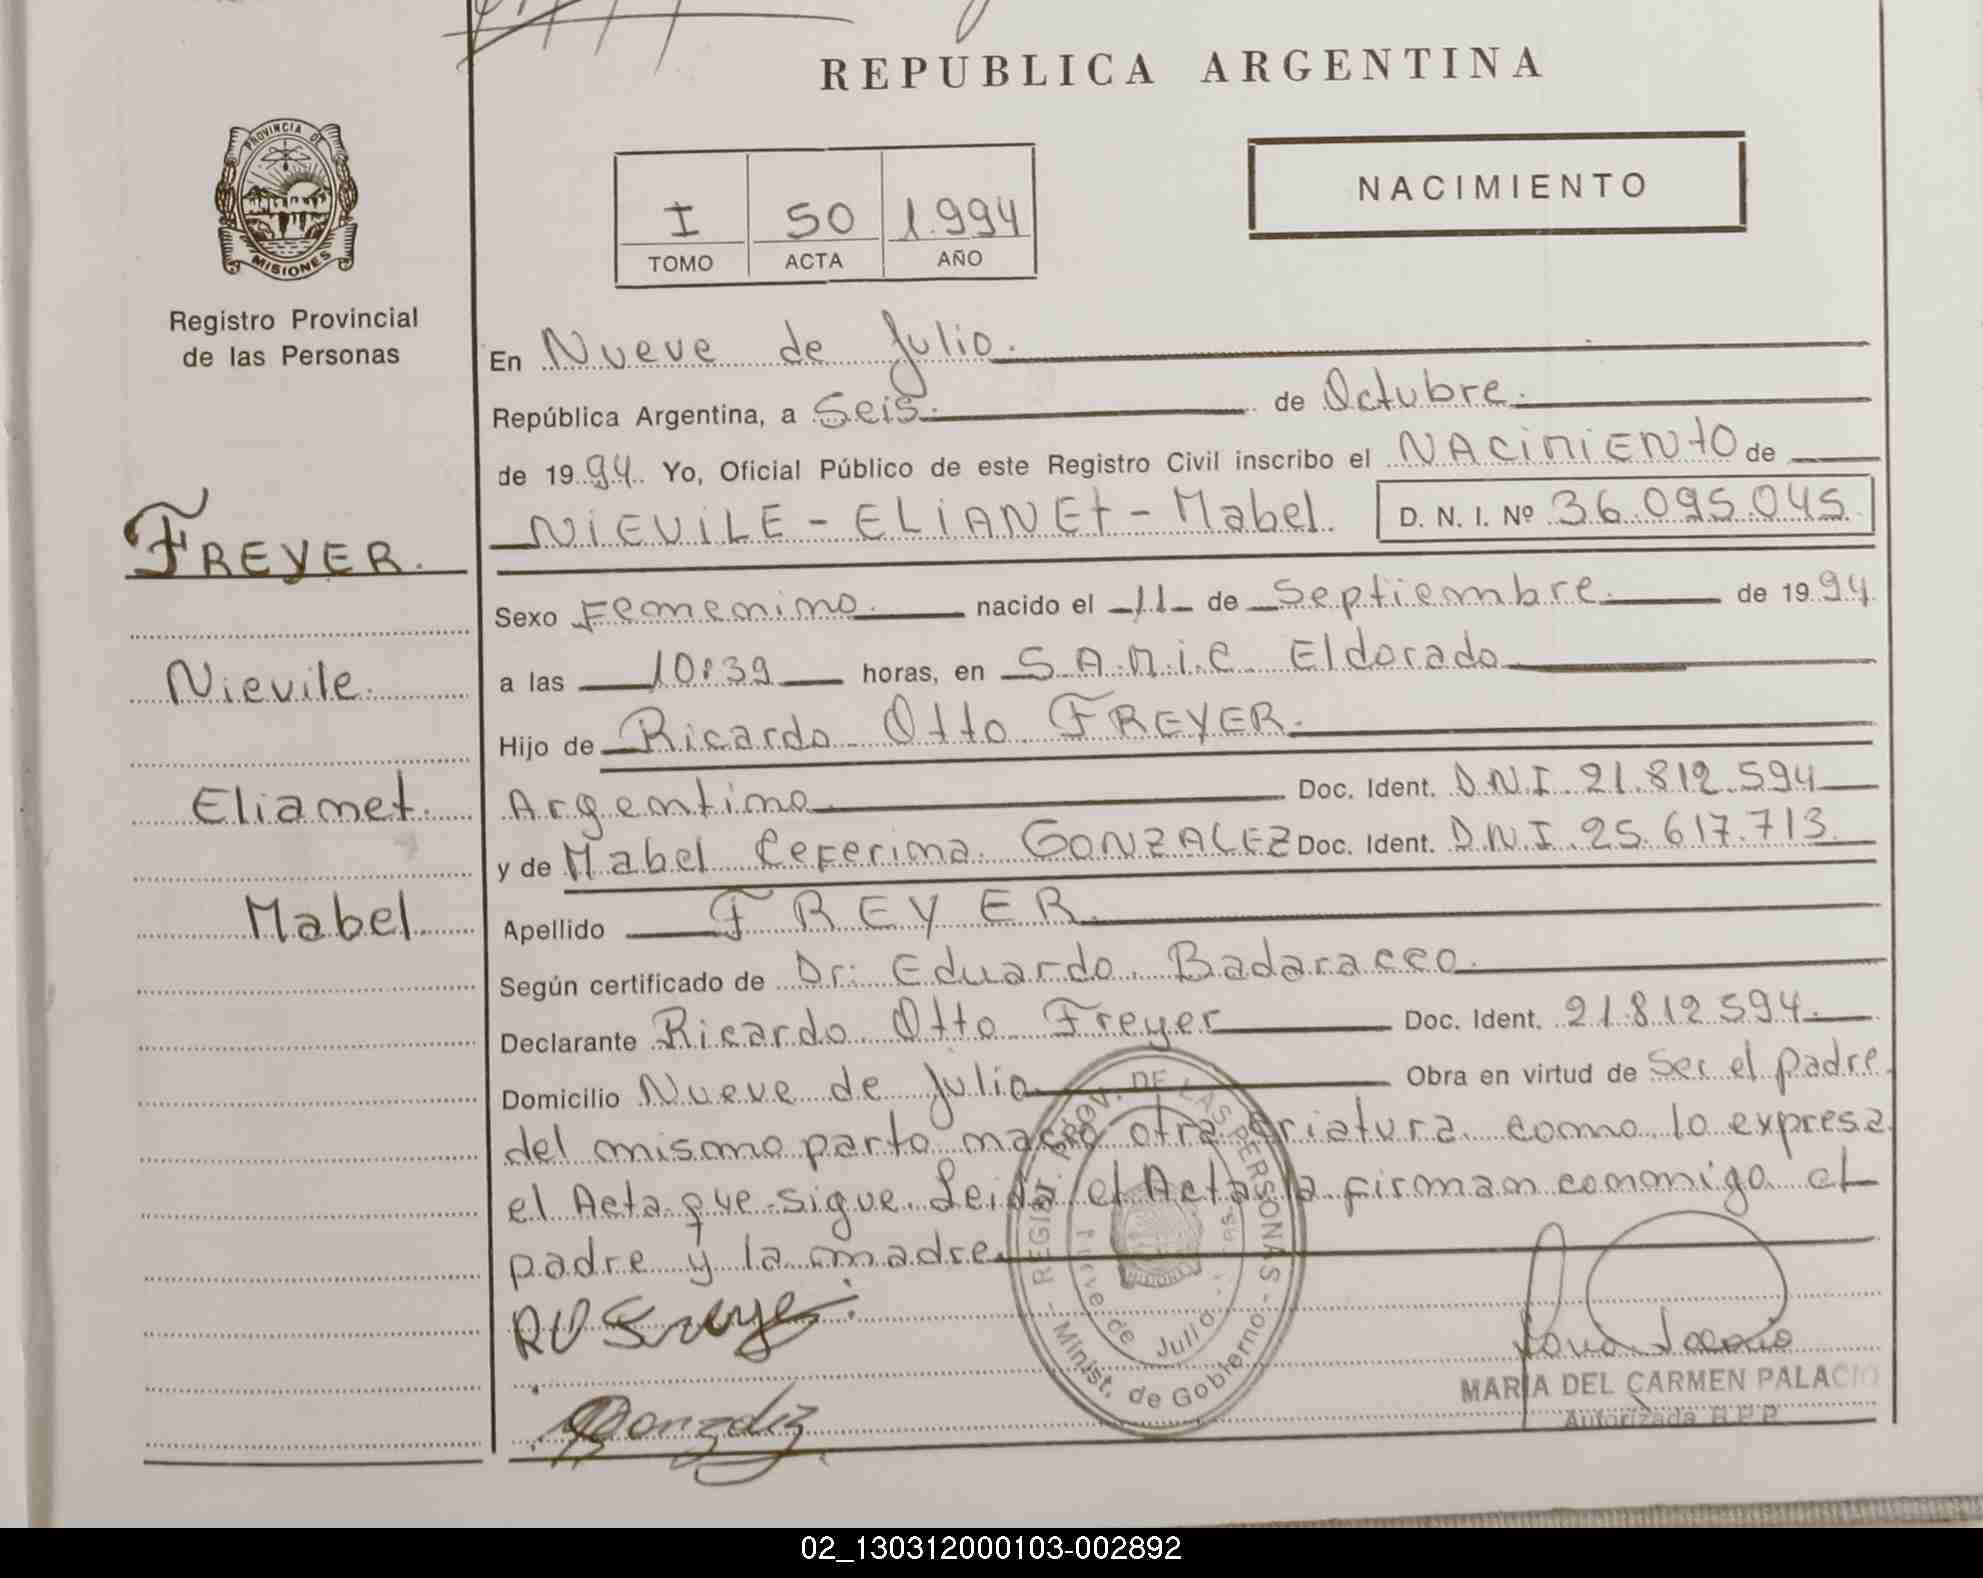 REPUBLICA ARGENTINA
PROVINCIA DE
MISIONES
Registro Provincial
de las Personas
NACIMIENTO
I 50 1.994
TOMO ACTA AÑO
En Nueve de Julio.
República Argentina, a Seis. de Octubre.
de 1994. Yo, Oficial Público de este Registro Civil inscribo el NACIMIENTO de
NIEVILE - ELIANEt - Mabel. D. N. I. Nº 36.095.045.
FREYER.
Nievile.
Elianet.
Mabel
Sexo Femenino. nacido el 11 de Septiembre. de 1994.
a las 10:39 horas, en S.A.M.i.C Eldorado
Hijo de Ricardo Otto FREYER.
Argentino Doc. Ident. D.N.I. 21.812.594
y de Mabel Ceferina GONZALEZ Doc. Ident. D.N.I. 25.617.713.
Apellido FREYER.
Según certificado de Dr: Eduardo Badaracco.
Declarante Ricardo Otto Freyer Doc. Ident. 21.812.594.
Domicilio Nueve de Julio Obra en virtud de Ser el padre.
del mismo parto nació otra criatura como lo expresa
el Acta que sigue. Leida el Acta la firman conmigo el
padre y la madre.
RO Freyer.
Gonzalez
REGIST. PROV. DE LAS PERSONAS - Minist. de Gobierno -
Nueve de Julio
MISIONES
MARIA DEL CARMEN PALACIO
Autorizada R.P.P.
02_130312000103-002892